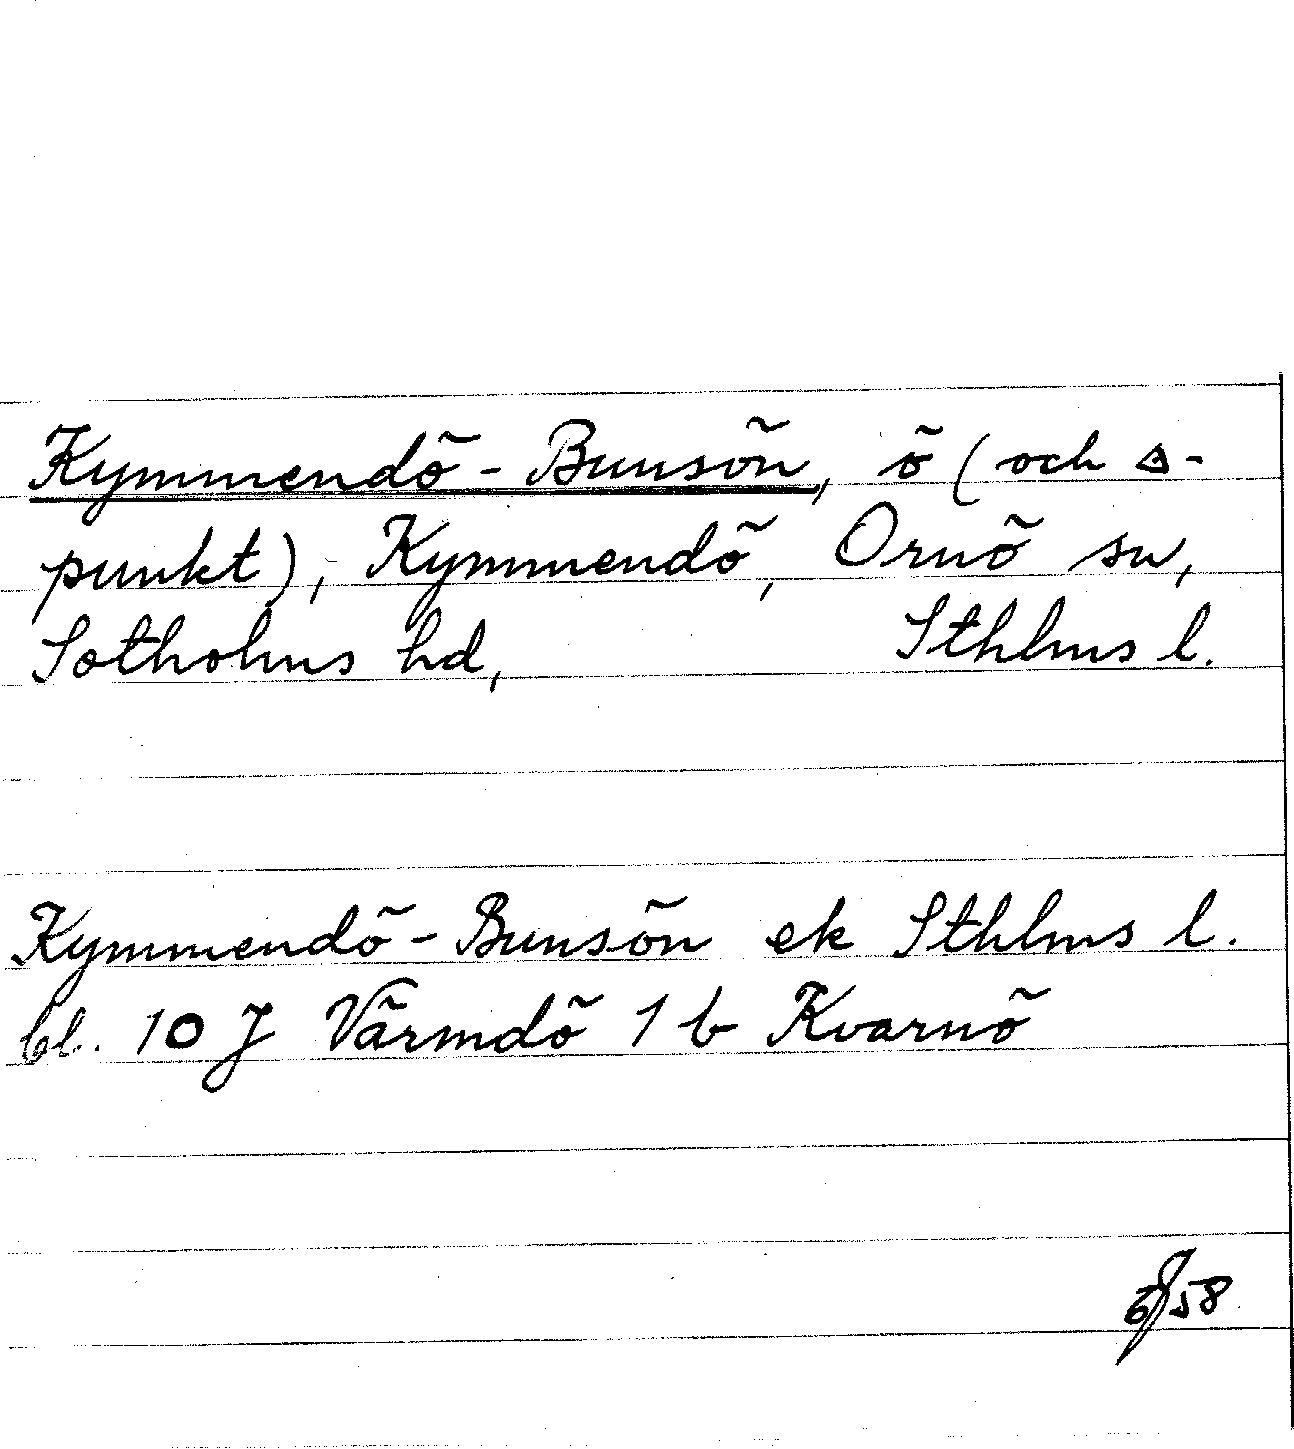 Kymmendö-Bunsön, ö (och △-
punkt), Kymmendö, Ornö sn,
Sotholms hd, Sthlms l.
Kymmendö-Bunsön ek Sthlms l.
bl. 10 J Värmdö 1 b Kvarnö
58